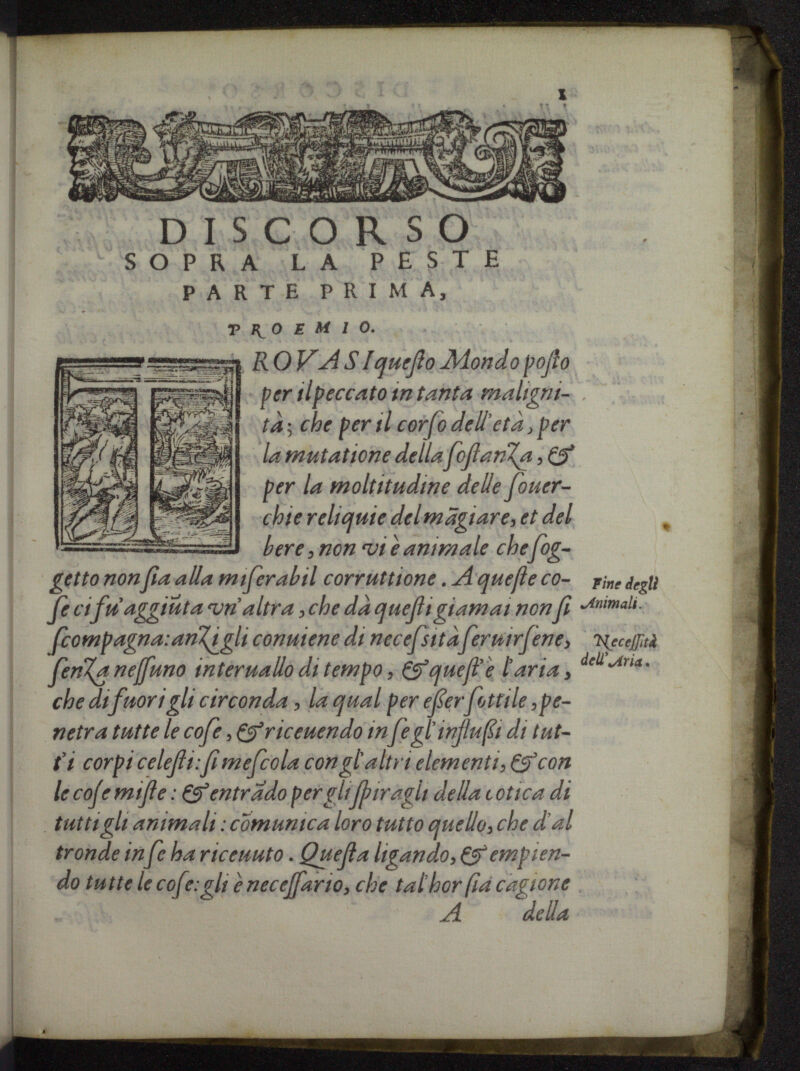 1
DISCORSO
SOPRA LA PESTE
PARTE PRIMA,
PROEMIO.
TROVASI questo Mondo posto
per il peccato in tanta maligni-
tà; che per il corso dell'età, per
la mutatione della sostanza, &
per la moltitudine delle souer-
chie reliquie del mãgiare, et del
bere, non vi è animale che sog-
getto non sia alla miserabil corruttione. A queste co-
se ci fu aggiũta vn'altra, che dà questi giamai non si
scompagna: anzi gli conuiene di necessità seruirsene,
senza nessuno interuallo di tempo, & quest'è l'aria,
che di fuori gli circonda, la qual per esser sottile, pe-
netra tutte le cose, & riceuendo in se gl'influssi di tut-
t'i corpi celesti: si mescola con gl'altri elementi, & con
le cose miste: & entrãdo per gli spiragli della cotica di
tutti gli animali: cõmunica loro tutto quello, che d'al
tronde in se ha riceuuto. Questa ligando, & empien-
do tutte le cose: gli è necessario, che tal'hor sia cagione
A della
Fine degli
Animali.
Necessità
dell'Aria.